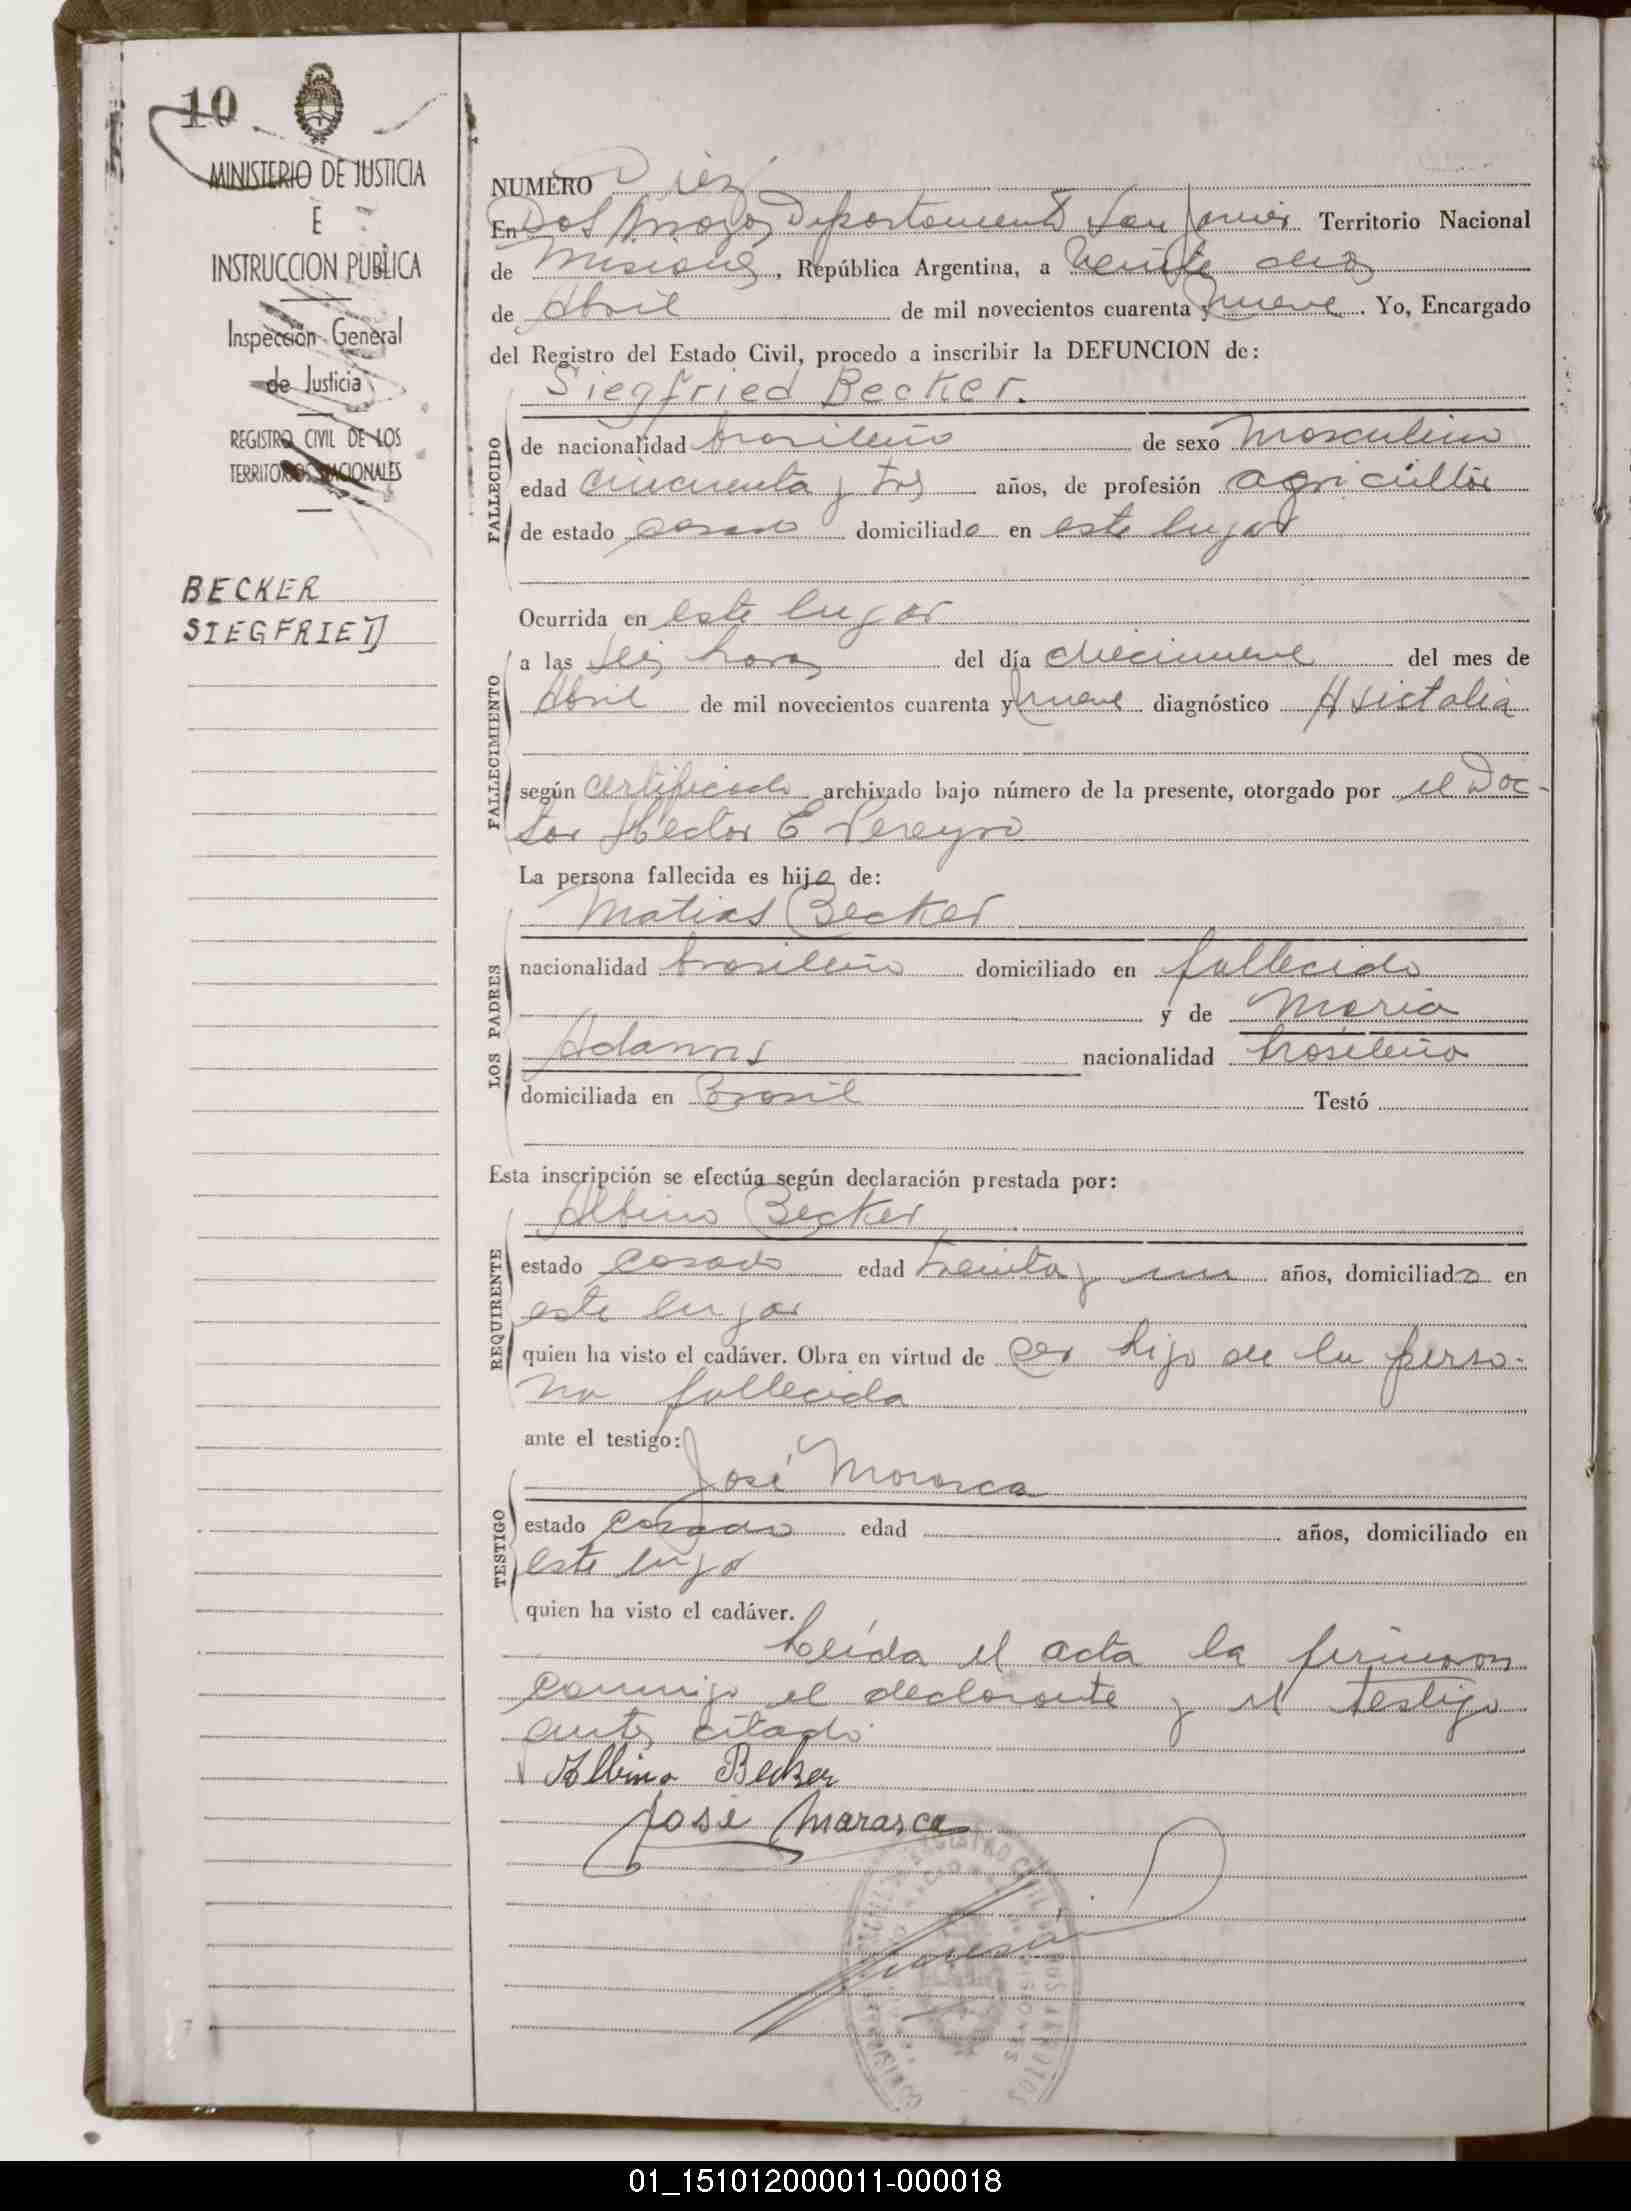 10
MINISTERIO DE JUSTICIA
E
INSTRUCCION PUBLICA
Inspección General
de Justicia
REGISTRO CIVIL DE LOS
TERRITORIOS NACIONALES
BECKER
SIEGFRIED
NUMERO Diez
En Dos Arroyos Departamento San Javier Territorio Nacional
de Misiones, República Argentina, a veinte dias
de Abril de mil novecientos cuarenta y nueve. Yo, Encargado
del Registro del Estado Civil, procedo a inscribir la DEFUNCION de:
Siegfried Becker.
FALLECIDO
de nacionalidad brasileño de sexo Masculino
edad cincuenta y tres años, de profesión agricultor
de estado casado domiciliado en este lugar
Ocurrida en este lugar
FALLECIMIENTO
a las seis horas del día diecinueve del mes de
Abril de mil novecientos cuarenta y nueve diagnóstico Asistalia
según certificado archivado bajo número de la presente, otorgado por el Doc-
tor Hector E Pereyra
La persona fallecida es hijo de:
LOS PADRES
Matias Becker
nacionalidad brasileño domiciliado en fallecido
y de Maria
Adanns nacionalidad brasileña
domiciliada en Brasil Testó
Esta inscripción se efectúa según declaración prestada por:
REQUIRENTE
Albino Becker
estado casado edad treinta y un años, domiciliado en
este lugar
quien ha visto el cadáver. Obra en virtud de ser hijo de la perso-
na fallecida
ante el testigo:
TESTIGO
José Marasca
estado casado edad años, domiciliado en
este lugar
quien ha visto el cadáver.
Leída el acta la firmaron
conmigo el declarante y el testigo
antes citado.
Albino Becker
José Marasca
REGISTRO CIVIL
DOS ARROYOS
MISIONES
01_151012000011-000018